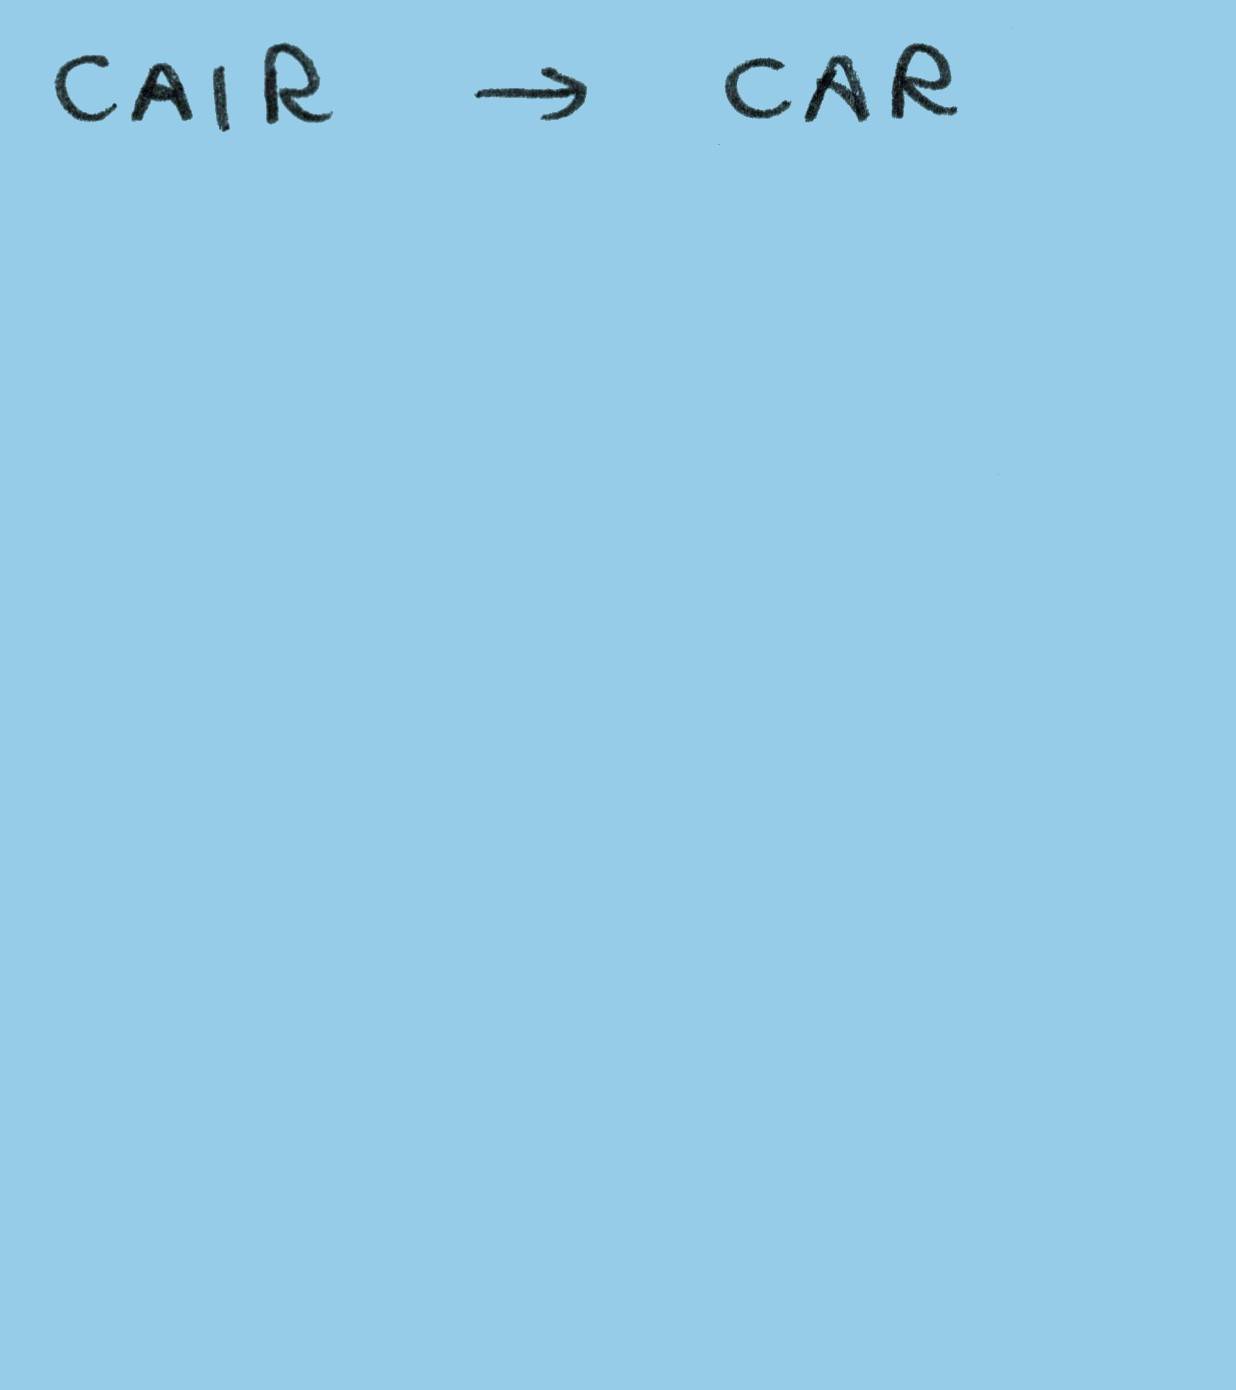 CAIR → CAR